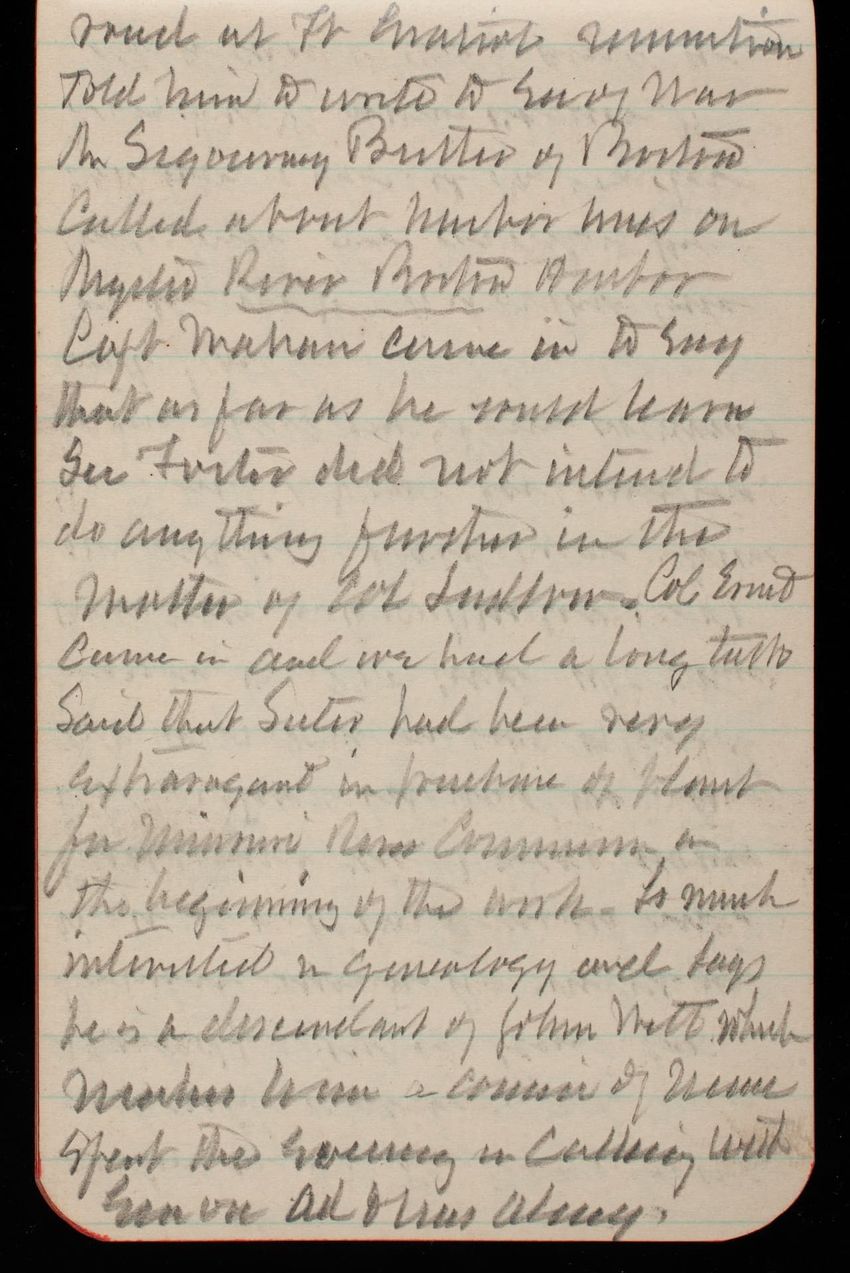 road at Ft Gratiot reservation
Told him to write to Sec of War
Mr Sigourney Butler of Boston
Called about harbor lines on
Mystic River Boston Harbor
Capt Mahan came in to say
that as far as he could learn
Sec Foster did not intend to
do anything further in the
matter of Col Ludlow. Col Ernst
came in and we had a long talk
Said that Suter had been very
extravagant in purchase of plant
for Missouri River Commission in
the beginning of the work - Is much
interested in geneology and says
he is a descendant of John Witt which
makes him a cousin of mine
Spent the Evening in Calling with
on Ad Mrs